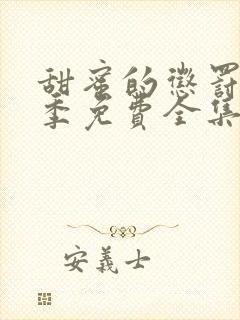 甜蜜的懲罰
季免費全集
安義士